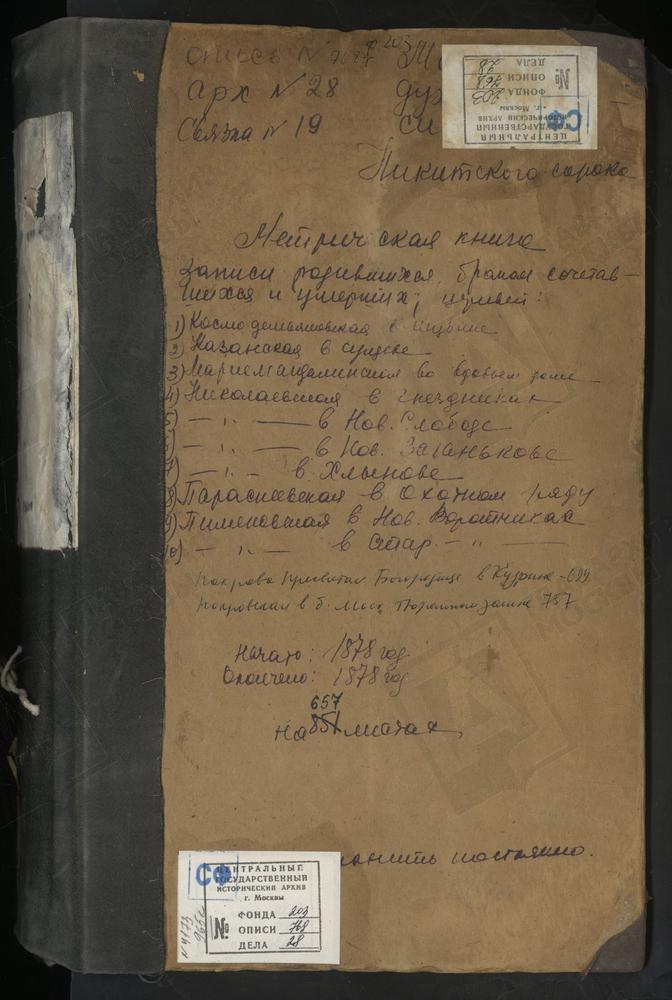 опись № ф 203
арх № 28 дух
Связка № 19
ЦЕНТРАЛЬНЫЙ
ГОСУДАРСТВЕННЫЙ
ИСТОРИЧЕСКИЙ АРХИВ
г. Москвы
ФОНДА 203
№ ОПИСИ 768
ДЕЛА 28
СФ
Никитского сорока
Метрическая книга
Записи родившихся, браком сочетав-
шихся и умерших; церквей:
1) Космодемьяновская в
2) Казанская в сущеве
3) Мариемагдалинская во вдовьем доме
4) Николаевская в гнездниках
5) — " — в Нов. Слободе
6) — " — в Нов. Ваганькове
7) — " — в Хлынове
8) Параскеевская в Охотном ряду
9) Пименовская в Нов. Воротниках
10) — " — в Стар. — " —
Покрова Пресвятой Богородицы в Кудрине - 689
Покровская в б. Моск. Тюремном замке 757
Начато: 1878 год
Окончено: 1878 год
657
На 851 листах
хранить постоянно.
СФ
ЦЕНТРАЛЬНЫЙ
ГОСУДАРСТВЕННЫЙ
ИСТОРИЧЕСКИЙ АРХИВ
г. Москвы
ФОНДА 203
№ ОПИСИ 768
ДЕЛА 28